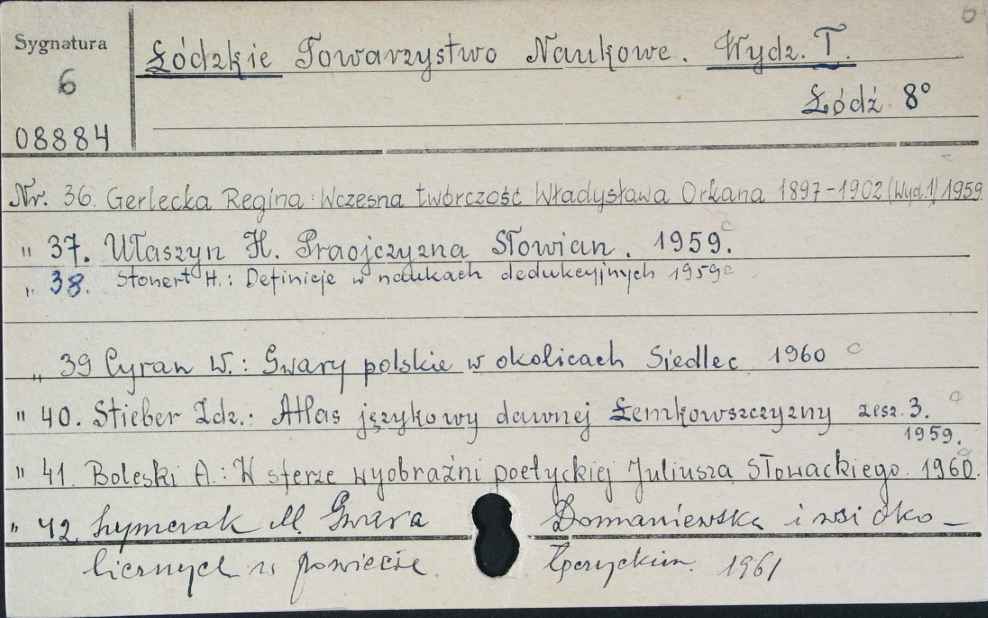 6
Sygnatura
6
08884
Łódzkie Towarzystwo Naukowe. Wydz. I.
Łódź 8°
Nr. 36. Gerlecka Regina: Wczesna twórczość Władysława Orkana 1897-1902 (Wyd.1) 1959
" 37. Ułaszyn H. Praojczyzna Słowian. 1959. c
" 38. Stonert H.: Definicje w naukach dedukcyjnych 1959 c
" 39 Cyran W.: Gwary polskie w okolicach Siedlec 1960 c
" 40. Stieber Zdz.: Atlas językowy dawnej Łemkowszczyzny zesz. 3. c
1959.
" 41. Boleski A.: W sferze wyobraźni poetyckiej Juliusza Słowackiego. 1960.
" 42. Szymczak M. Gwara Domaniewska i wsi oko-
licznych w powiecie łęczyckim. 1961